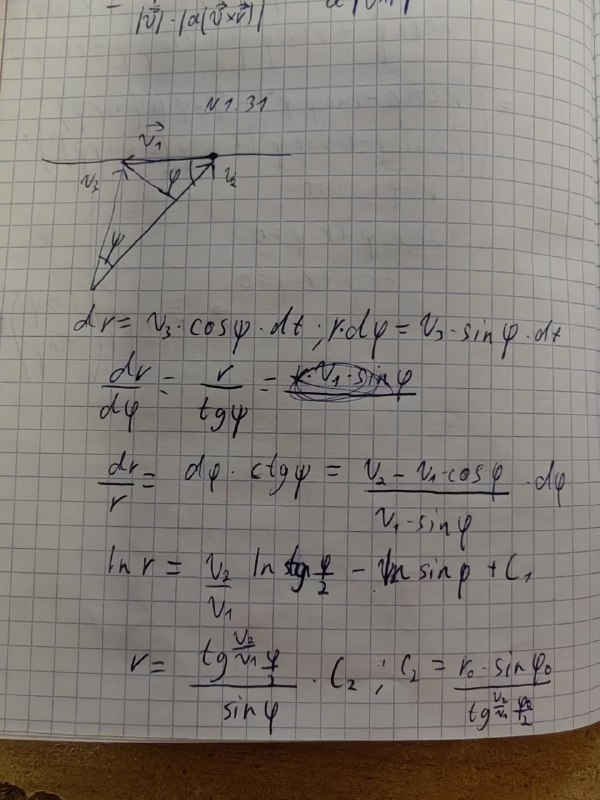 = |v⃗|·|a(v⃗×r⃗)|
N1.31
v⃗₁
v₃ φ v₂
ψ
dr = v₃·cosψ·dt ; r·dφ = v₃·sinψ·dt
dr/dφ = r/tgψ =
dr/r = dφ·ctgψ = (v₂ - v₁·cosφ)/(v₁·sinφ)·dφ
ln r = v₂/v₁ ln tg φ/2 - ln sinφ + C₁
r = (tg^(v₂/v₁) φ/2)/(sinφ)·C₂ ; C₂ = (r₀·sinφ₀)/(tg^(v₂/v₁) φ₀/2)